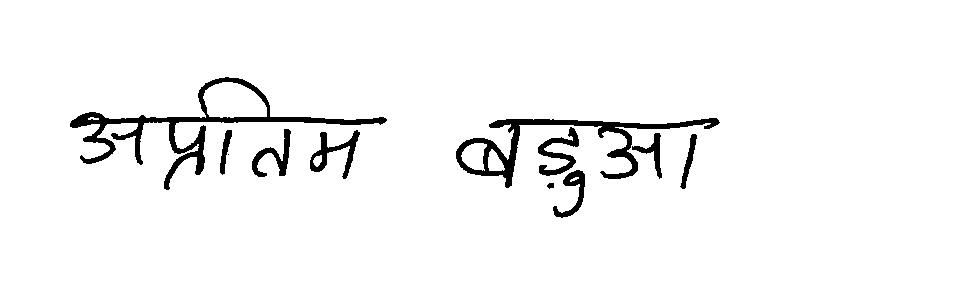 अप्रतिम बड़ुआ